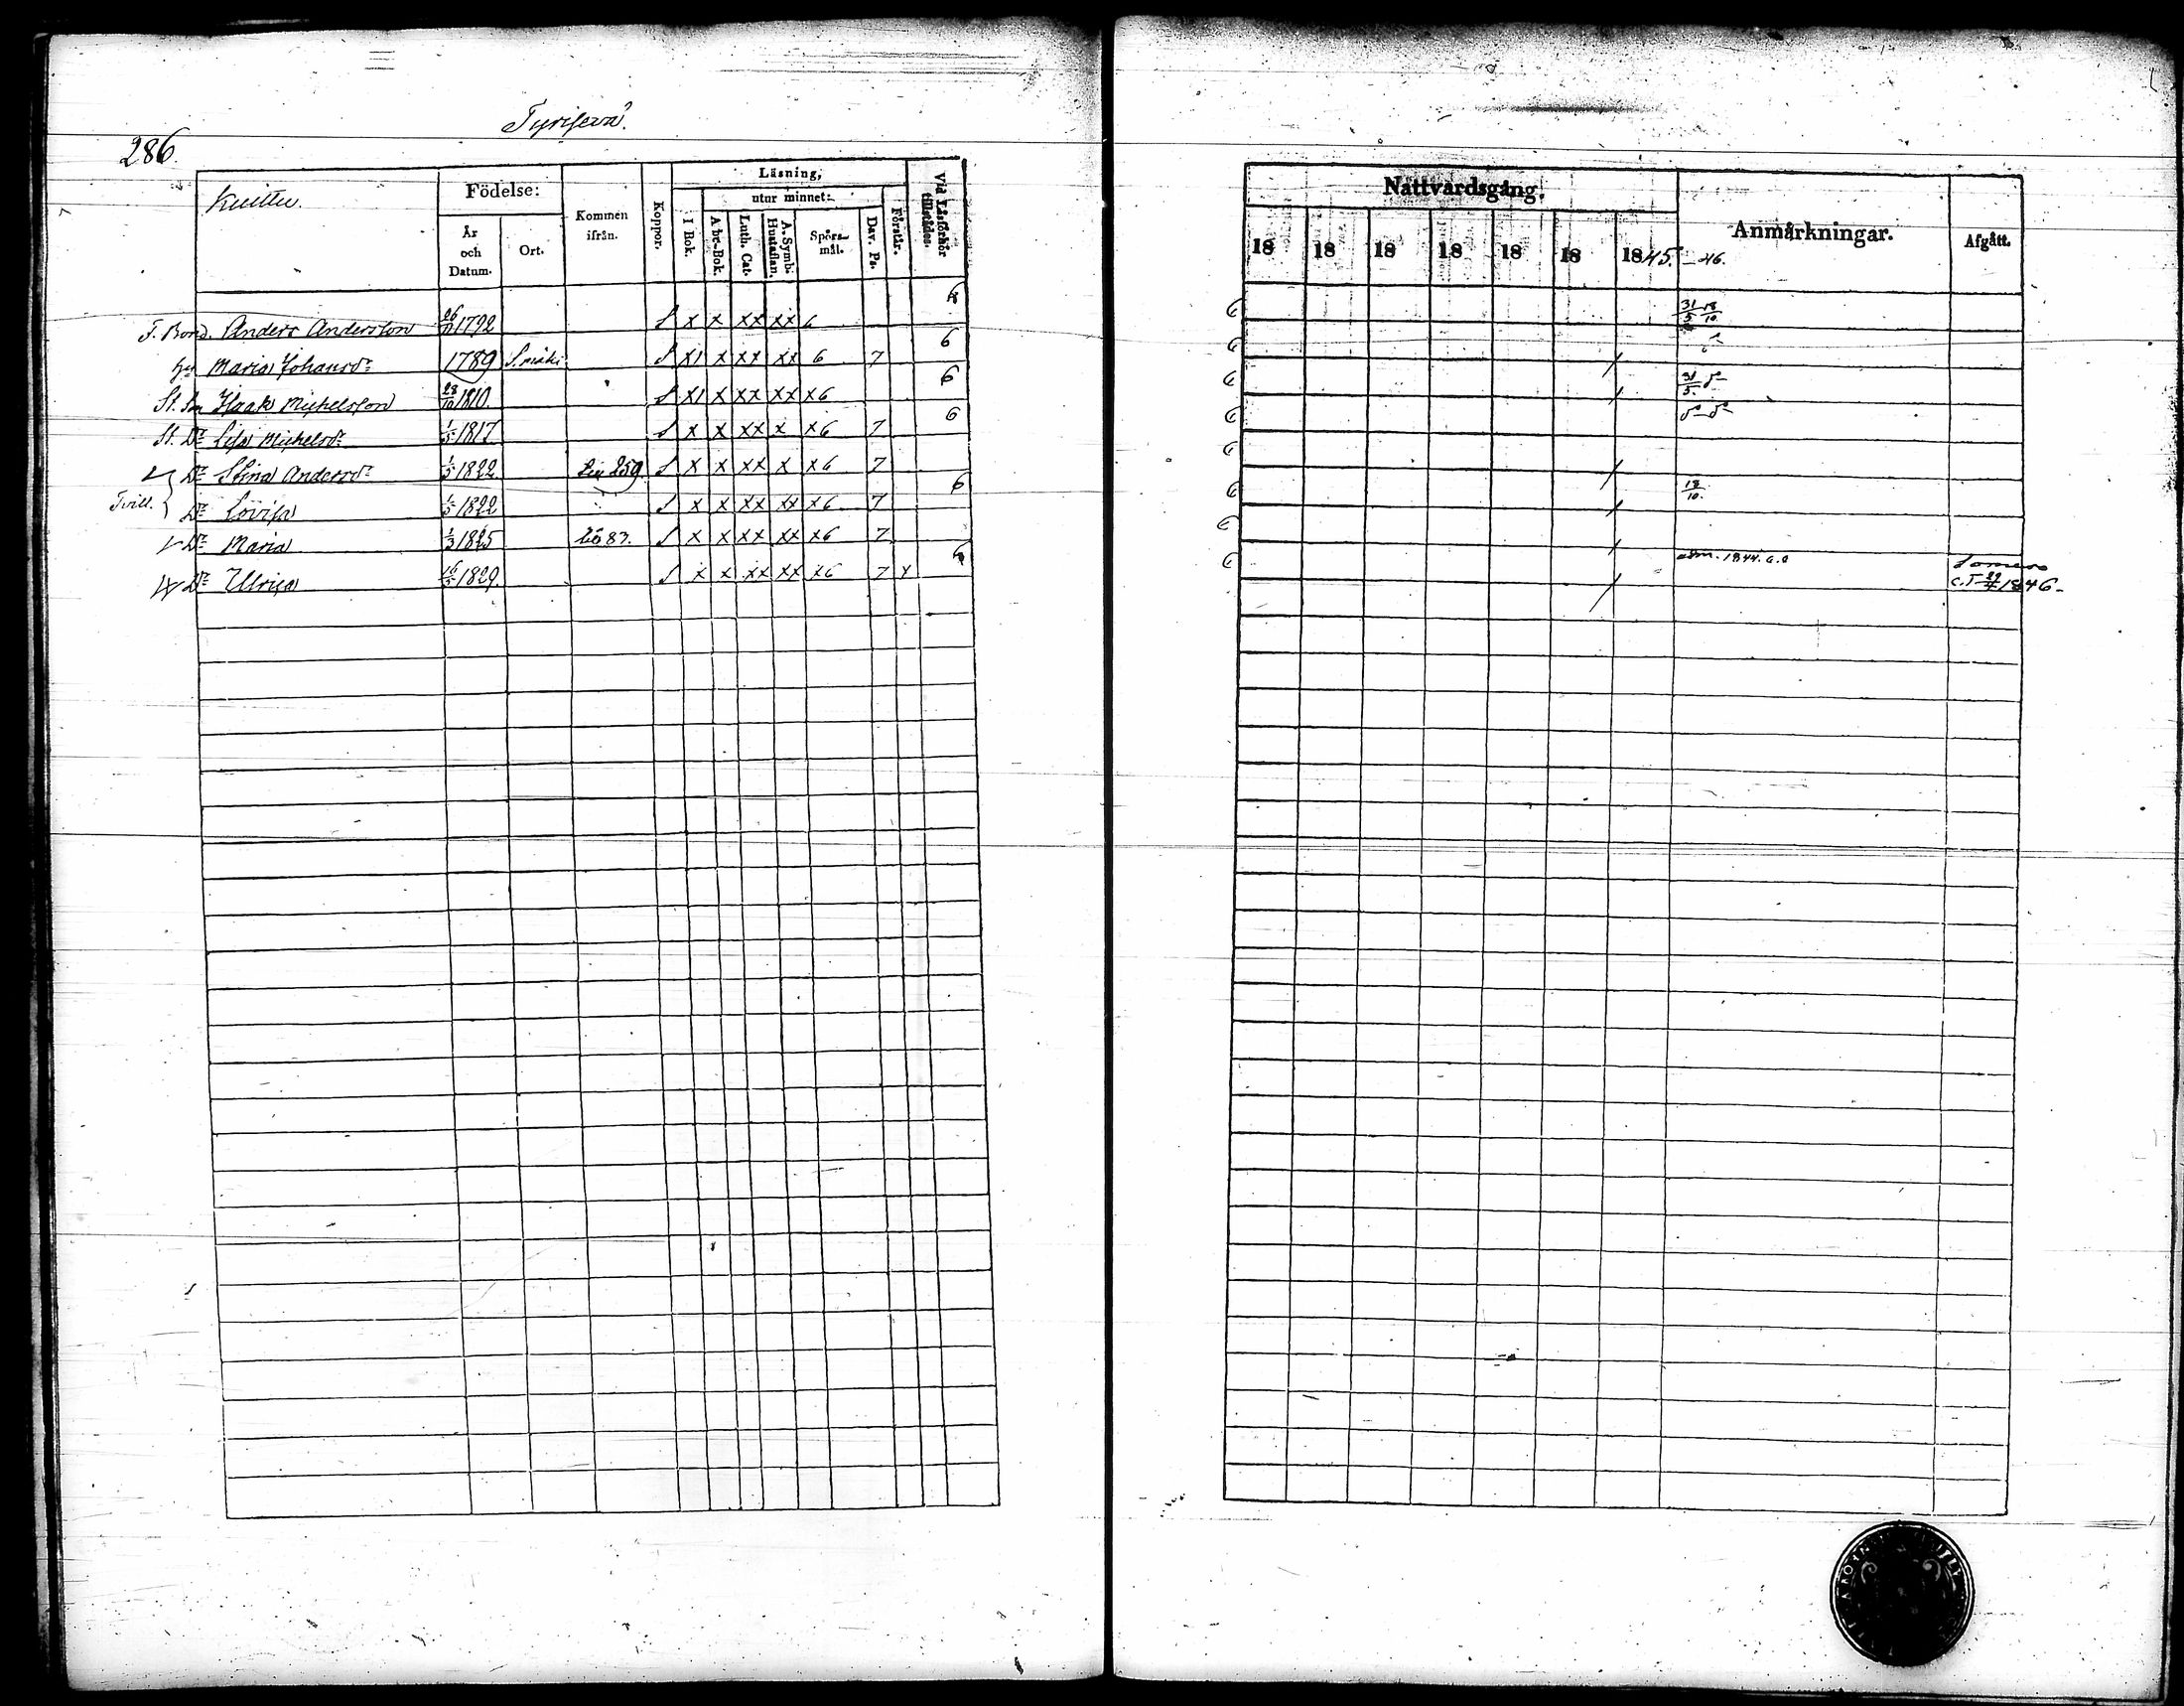 286.
Kuittu.
Födelse:
År och Datum.
Ort.
Kommen ifrån.
Koppor.
Läsning,
utur minnet:
I Bok.
A bc-Bok.
Luth. Cat.
A. Symb. Hustaflan.
Spörsmål.
Dav. Ps.
Förstår.
Vid Läsförhör tillstädes.
F. Bond. Anders Andersson 26/11 1792 S x x xx xx 6 6
Hu Maria Johansdr 1789 S.mäki S x1 x xx xx 6 7 6
St. Son Isaak Michelsson 28/10 1810. S x1 x xx xx x6 6
St. Dr Lisa Michelsdr 1/5 1817 S x x xx x x6 7 6
Dr Stina Andersdr 1/5 1822 259. S x x xx x x6 7
Tvill. Dr Lovisa 1/5 1822 S x x xx xx x6 7 6
Dr Maria 1/3 1825 83. S x x xx xx x6 7
Dr Ulrica 1829. S x x xx xx x6 7 x 6
Nattvardsgång.
18 18 18 18 18 18 1845. -46.
Anmärkningar.
Afgått.
6 31/5 18/10
6
6 31/5.
6
6
6 18/10.
6
6 adm. 1844. Somero
29/4 1846.